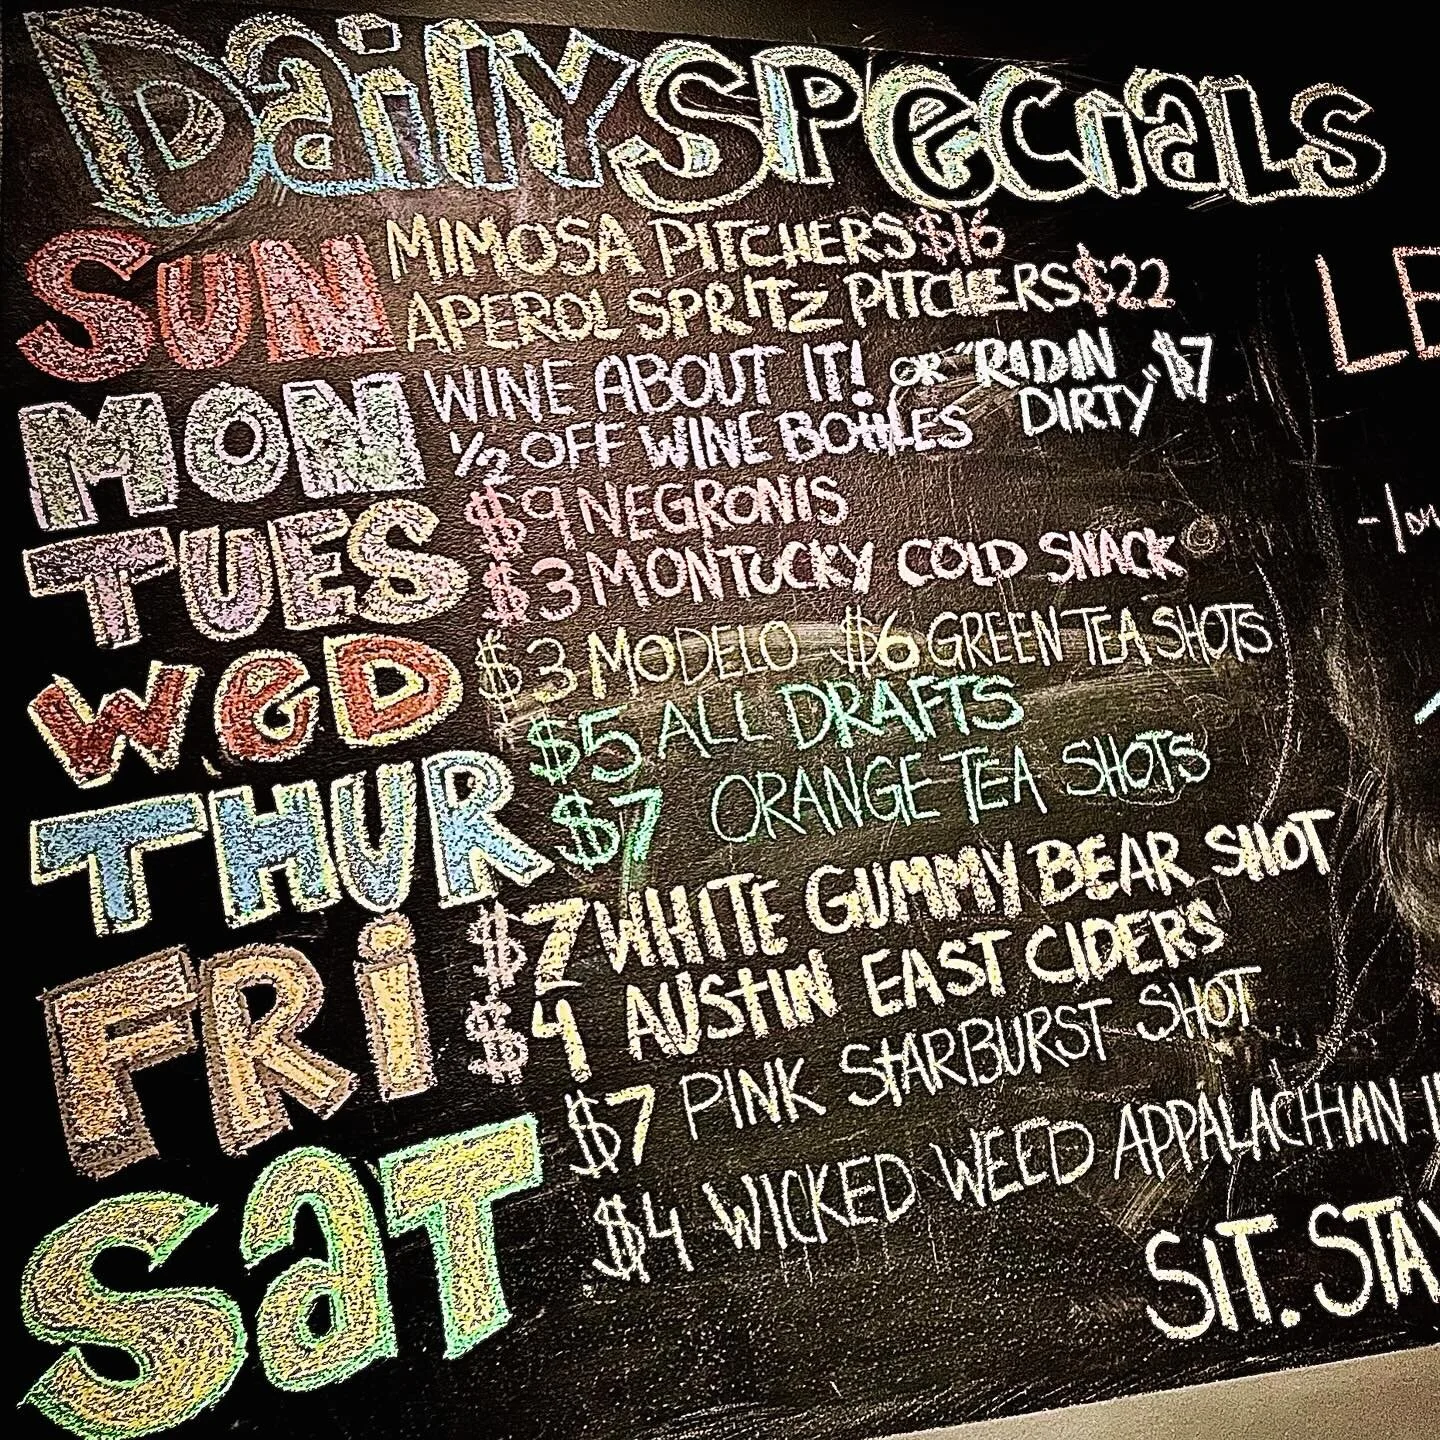 Daily Specials
SUN MIMOSA PITCHERS $16
APEROL SPRITZ PITCHERS $22
MON WINE ABOUT IT! OR "RIDIN DIRTY" $7
½ OFF WINE BOTTLES
TUES $9 NEGRONIS
$3 MONTUCKY COLD SNACK
WED $3 MODELO $6 GREEN TEA SHOTS
THUR $5 ALL DRAFTS
$7 ORANGE TEA SHOTS
FRI $7 WHITE GUMMY BEAR SHOT
$4 AUSTIN EAST CIDERS
SAT $7 PINK STARBURST SHOT
$4 WICKED WEED APPALACHIAN
SIT. STAY